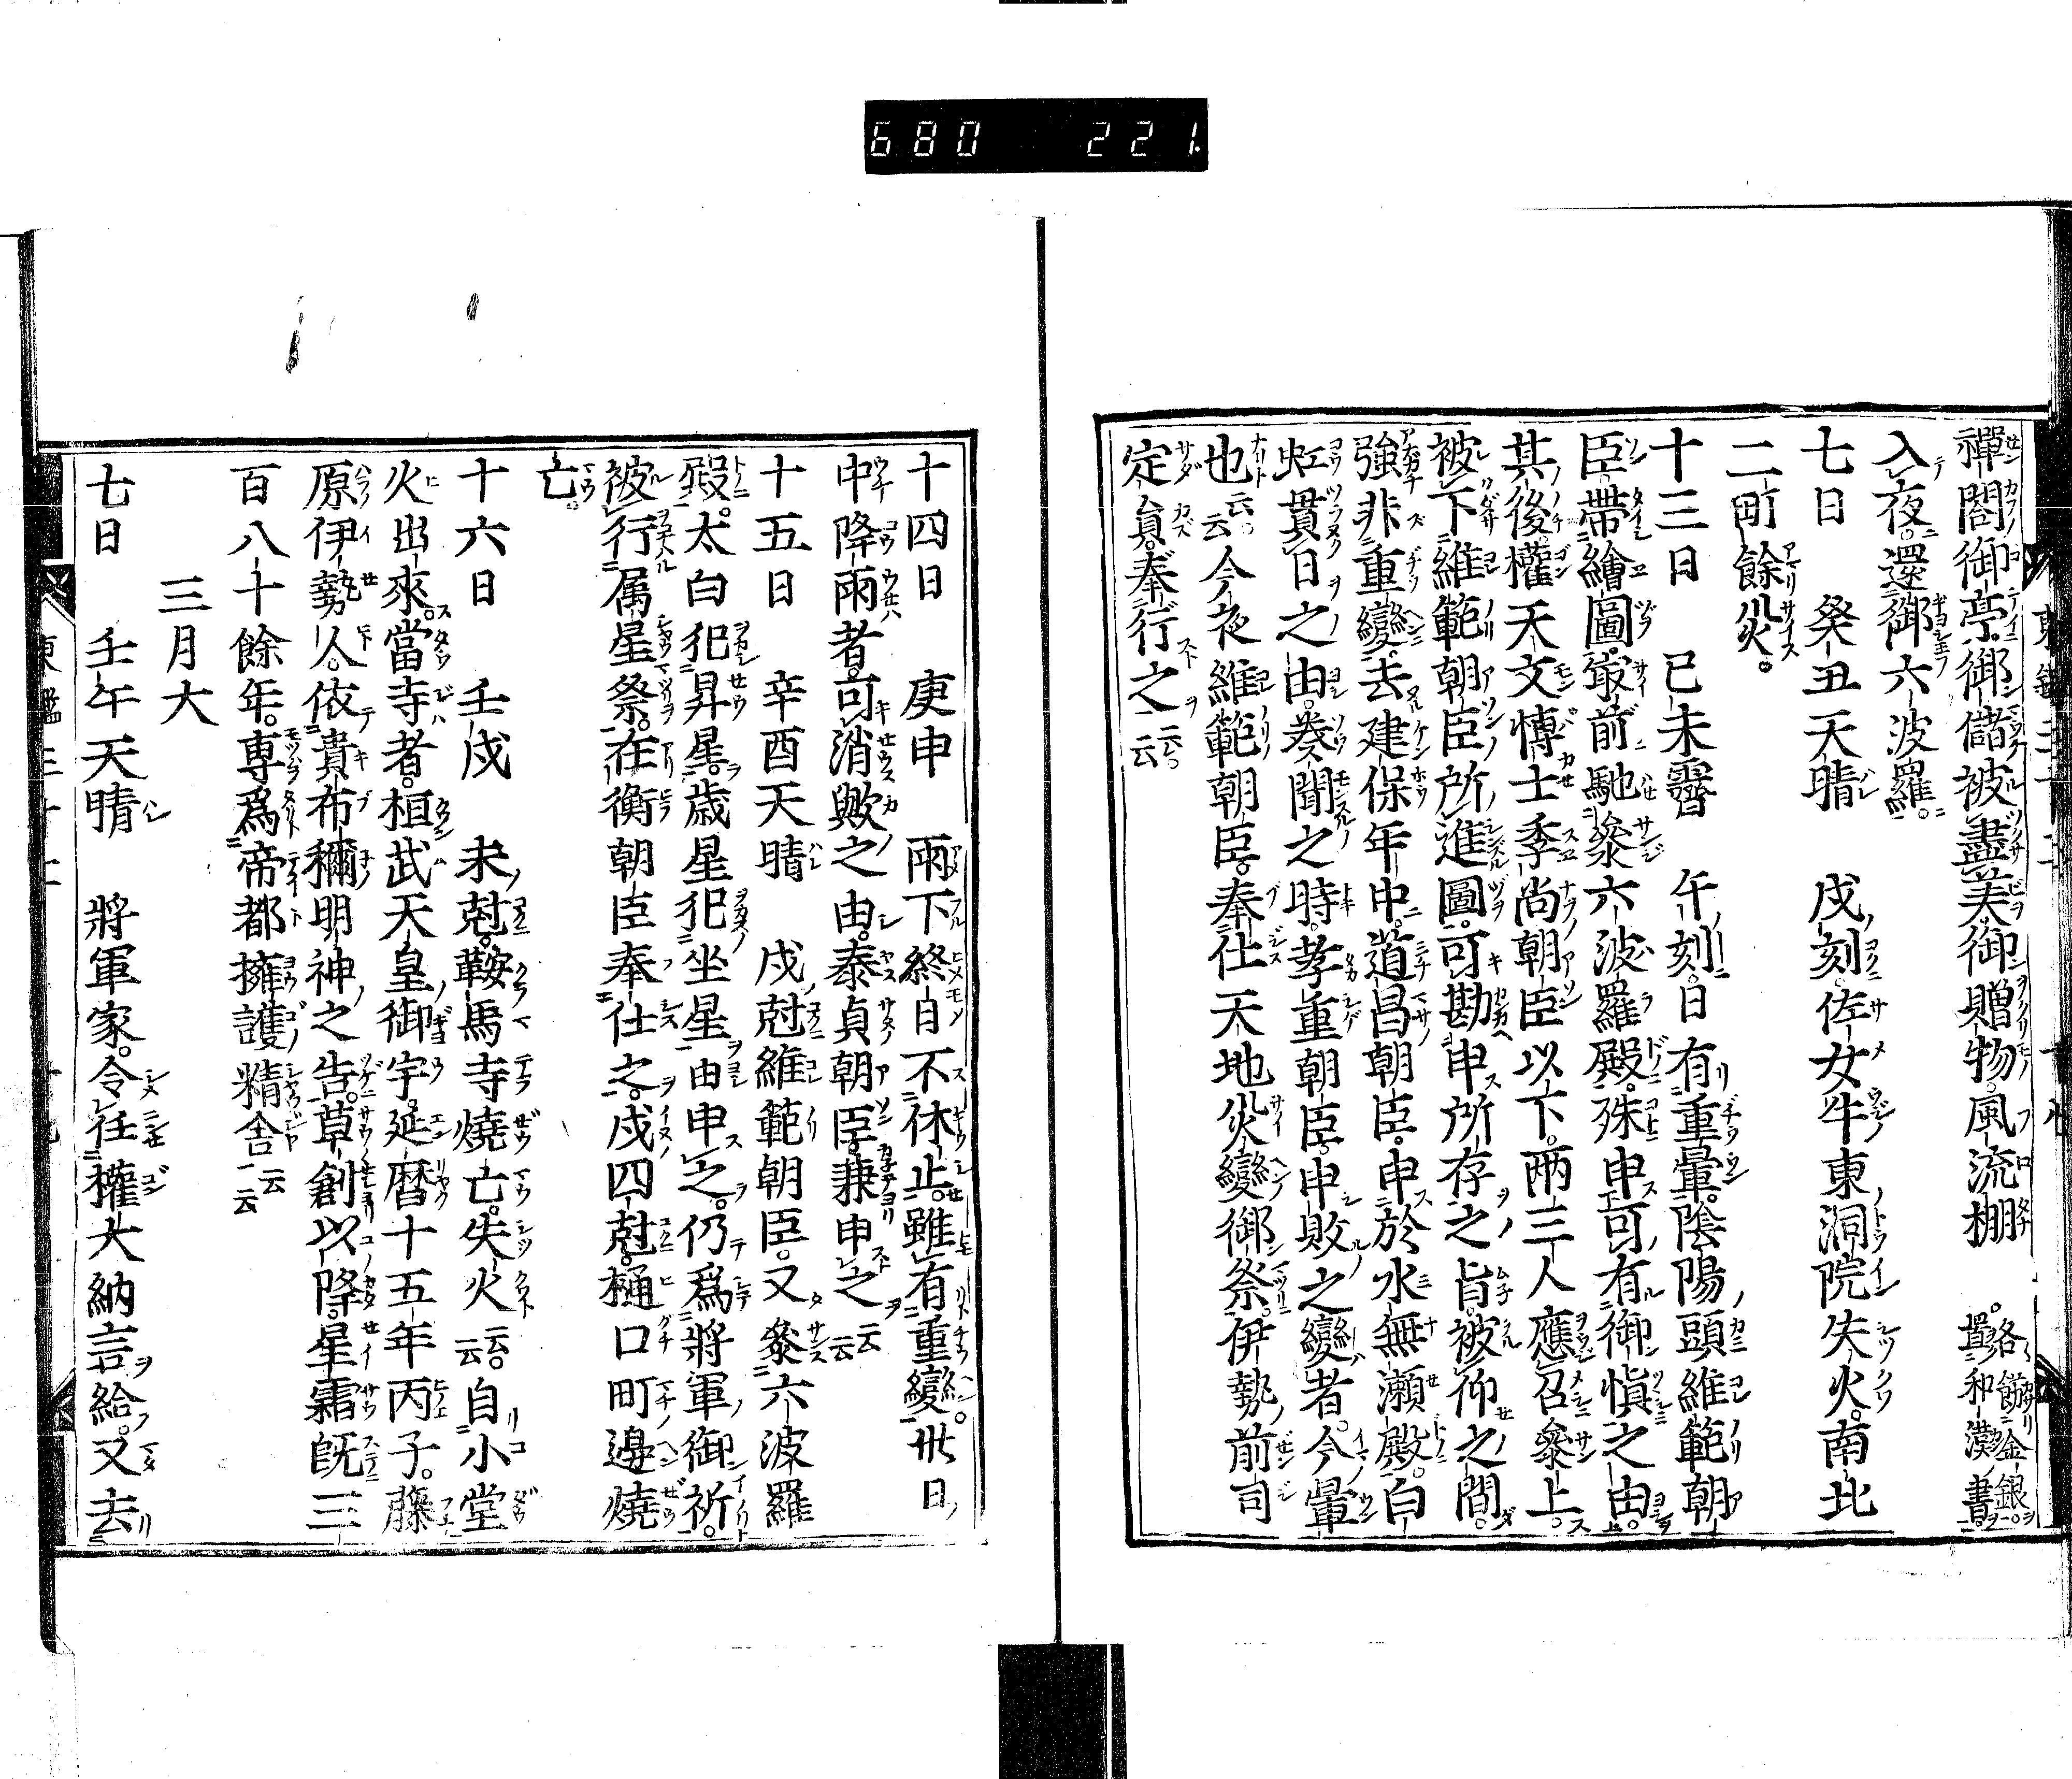 680 221
禪閤御亭御儲被盡美御贈物風流棚。絡餝金銀。置和漢書。
入夜還御六波羅。
七日 癸丑天晴 戌刻佐女牛東洞院失火。南北
二町餘災。
十三日 己未霽 午刻。日有重暈。陰陽頭維範朝
臣帶繪圖。最前馳參六波羅殿。殊申可有御愼之由。
其後權天文博士季尚朝臣以下。兩三人應召參上。
被下維範朝臣所進圖。可勘申所存之旨。被仰之間。
強非重變。去建保年中。道昌朝臣。申於水無瀬殿。白
虹貫日之由。奏聞之時。孝重朝臣。申敗之變者。今暈
也云云。今夜維範朝臣。奉仕天地災變御祭。伊勢前司
定員。奉行之云云。
十四日 庚申 雨下終日不休止。雖有重變。卅日
中降雨者。可消歟之由。泰貞朝臣。兼申之云云
十五日 辛酉天晴 戌尅維範朝臣。又參六波羅
殿。太白犯昇星。歳星犯坐星由申之。仍爲將軍御祈。
被行属星祭。在衡朝臣奉仕之。戌四尅。樋口町邊燒
亡。
十六日 壬戌 未尅。鞍馬寺燒亡。失火云云。自小堂
火出來。當寺者。桓武天皇御宇。延暦十五年丙子。藤
原伊勢人。依貴布禰明神之告。草創以降。星霜既三
百八十餘年。專爲帝都擁護精舎云云
三月大
七日 壬午天晴 將軍家。令任權大納言給。又去